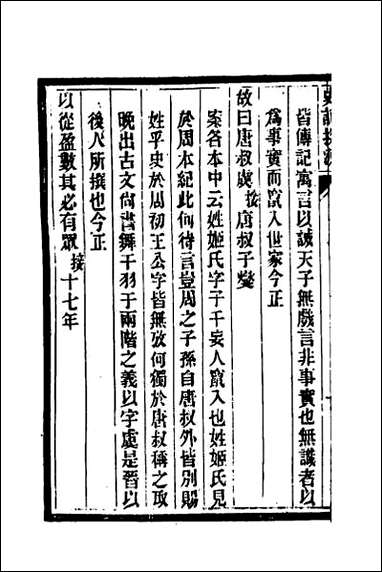 皆傳記寓言以誡天子無戲言非事實也無識者以
爲事實而竄入世家今正
故曰唐叔虞按唐叔子燮
案各本中云姓姬氏字子干妄人竄入也姓姬氏見
於周本紀此何待言豈周之子孫自唐叔外皆別賜
姓乎史於周初王公字皆無攷何獨於唐叔稱之取
晚出古文尚書舞干羽于兩階之義以字虞是晉以
後人所撰也今正
以從盈數其必有眾按十七年